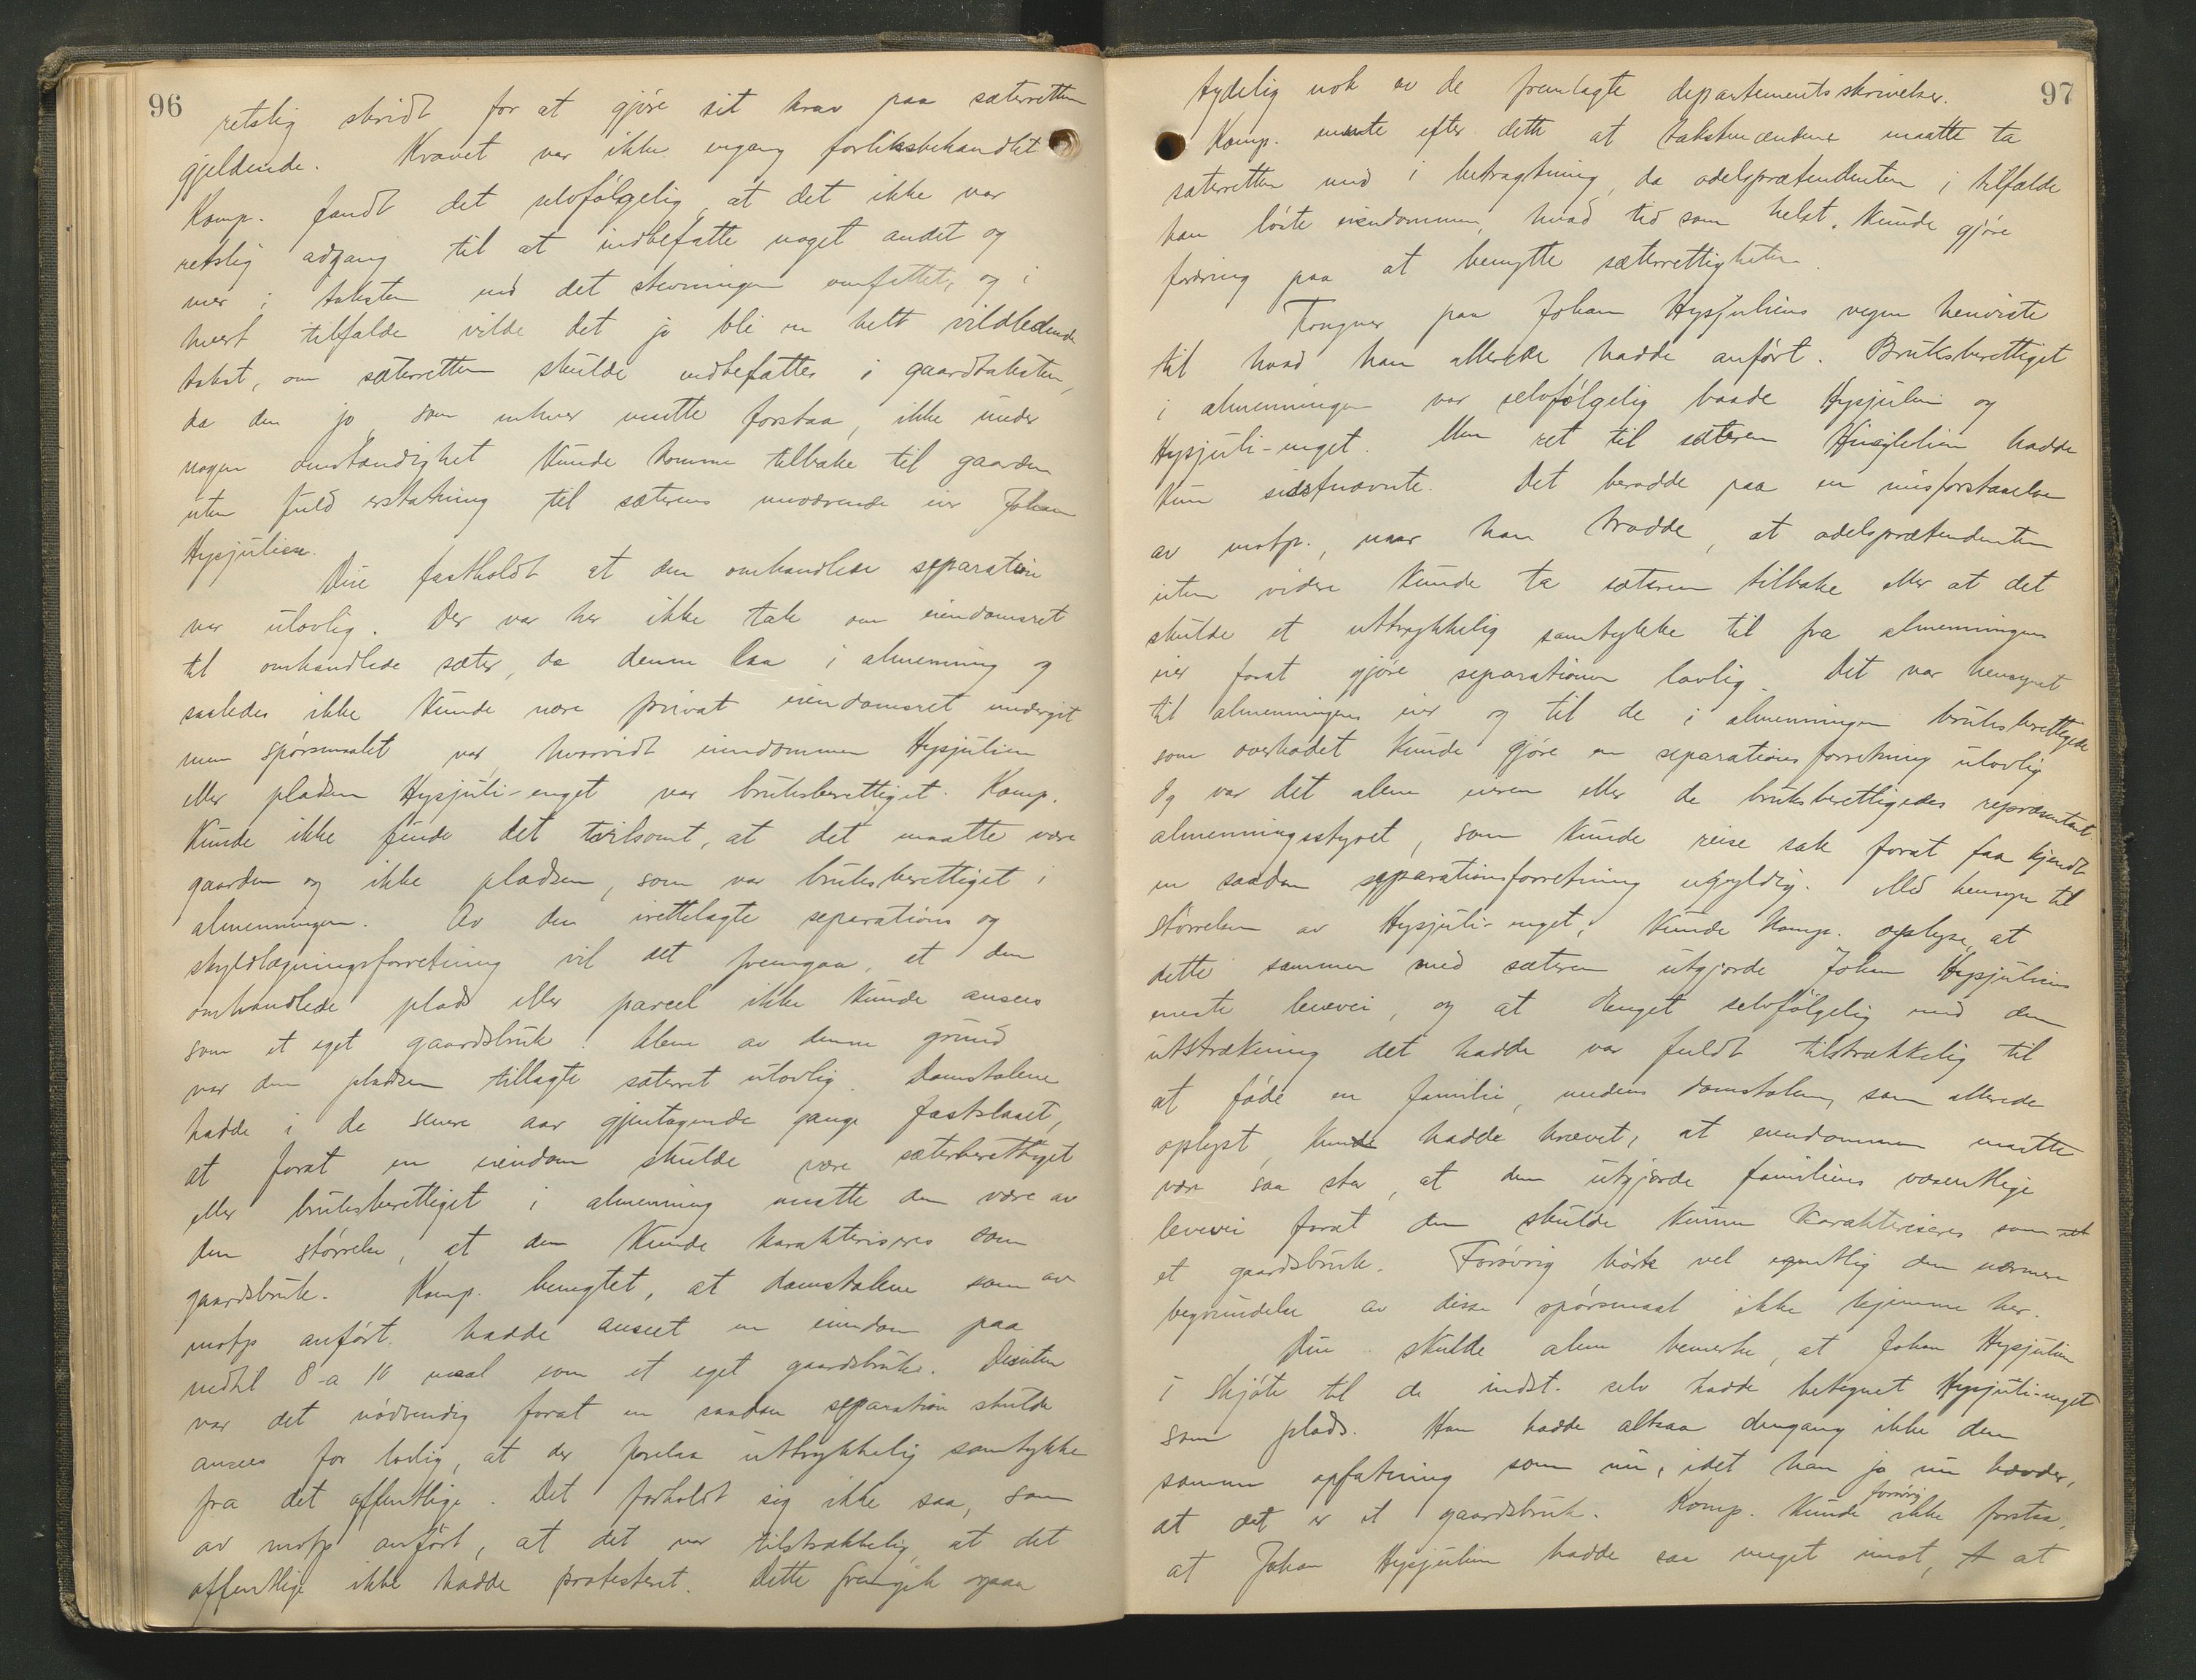 96
retslig skridt for at gjøre sit krav paa sæterretten
gjeldende. Kravet var ikke engang forliksbehandlet
Komp. fandt det selvfølgelig, at det ikke var
retslig adgang til at indbefatte noget andet og
mer i taksten end det stevningen omfattet, og i
hvert tilfælde vilde det jo bli en helt vildledende
takst, om sæterretten skulde indbefattes i gaardtaksten,
da den jo, som enhver maatte forstaa, ikke under
nogen omstændighet kunde komme tilbake til gaarden
uten fuld erstatning til sæterens nuværende eier Johan
Hysjulien.
Due fastholdt at den omhandlede separation
var ulovlig. Der var her ikke tale om eiendomsret
til omhandlede sæter, da denne laa i almenning og
saaledes ikke kunde være privat eiendomsret undergit
men spørsmaalet var, hvorvidt eiendommen Hysjulien
eller pladsen Hysjuli-enget var bruksberettiget. Komp.
kunde ikke finde det tvilsomt, at det maatte være
gaarden og ikke pladsen, som var bruksberettiget i
almenningen. Av den irettelagte separations og
skyldlægningsforretning vil det fremgaa, at den
omhandlede plads eller parcel ikke kunde ansees
som et eget gaardsbruk. Alene av denne grund
var den pladsen tillagte sæterret ulovlig. Domstolene
hadde i de senere aar gjentagende gange fastslaaet,
at forat en eiendom skulde være sæterberettiget
eller bruksberettiget i almenning maatte den være av
den størrelse, at den kunde karakteriseres som
gaardsbruk. Komp. benegtet, at domstolene som av
motp anført hadde anseet en eiendom paa
nedtil 8 a 10 maal som et eget gaardsbruk. Desuten
var det nødvendig forat en saadan separation skulde
ansees for lovlig, at der forelaa uttrykkelig samtykke
fra det offentlige. Det forholdt sig ikke saa, som
av motp anført, at det var tilstrækkelig, at det
offentlige ikke hadde protesteret. Dette fremgik ogsaa
97
tydelig nok av de fremlagte departementsskrivelser.
Komp. mente efter dette at takstmændene maatte ta
sæterretten med i betragtning, da odelsprætendenten i tilfælde
han løste eiendommen, hvad tid som helst, kunde gjøre
fordring paa at benytte sæterrettigheten.
Tongner paa Johan Hysjuliens vegne henviste
til hvad han allerede hadde anført. Bruksberettiget
i almenningen var selvfølgelig baade Hysjulien og
Hysjuli-enget. Men ret til sæteren hadde
kun sidstnævnte. Det berodde paa en misforstaaelse
av motp., naar han trodde, at odelsprætendenten
uten videre kunde ta sæteren tilbake eller at det
skulde et uttrykkelig samtykke til fra almenningens
eier forat gjøre separationen lovlig. Det var hensynet
til almenningens eier og til de i almenningen bruksberettigede
som overhodet kunde gjøre en separationsforretning ulovlig
Og var det alene eieren eller de bruksberettigedes repræsentant
almenningsstyret, som kunde reise sak forat faa kjendt
en saadan separationsforretning ugyldig. Med hensyn til
størrelsen av Hysjuli-enget, kunde komp. oplyse, at
dette sammen med sæteren utgjorde Johan Hysjuliens
eneste levevei, og at Enget selvfølgelig med den
utstrækning det hadde var fuldt tilstrækkelig til
at føde en familie, medens domstolene, som allerede
oplyst, kunde hadde krævet, at eiendommen maatte
være saa stor, at den utgjorde familiens væsentlige
levevei forat den skulde kunne karakteriseres som et
et gaardsbruk. Forøvrig hørte vel egentlig den nærmere
begrundelse av disse spørsmaal ikke hjemme her.
Due skulde alene bemerke, at Johan Hysjulien
i skjøte til de indst. selv hadde betegnet Hysjuli-enget
som plads. Han hadde altsaa dengang ikke den
samme opfatning som nu, idet han jo nu hævder,
at det er et gaardsbruk. Komp. kunde forøvrig ikke forstaa,
at Johan Hysjulien hadde saa meget imot, at